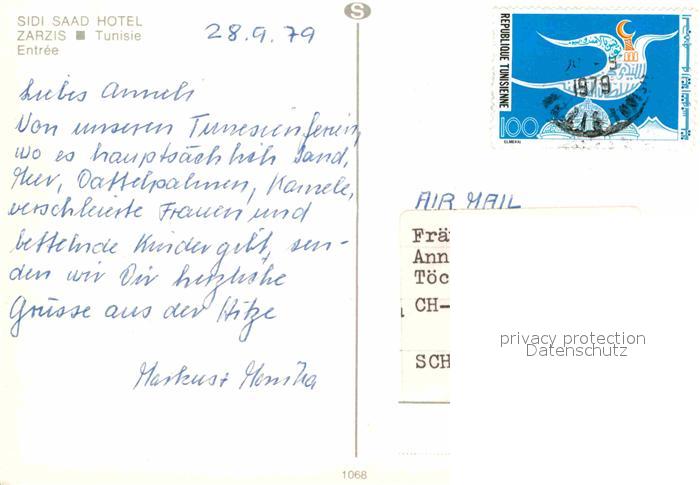 SIDI SAAD HOTEL
ZARZIS ■ Tunisie
Entrée
28.9.79
Liebes Anneli
Von unseren Tunesienferien,
wo es hauptsächlich Sand,
Meer, Dattelpalmen, Kamele,
verschleierte Frauen und
bettelnde Kinder gibt, sen-
den wir Dir herzliche
Grüsse aus der Hitze
Markus + Monika
S
REPUBLIQUE TUNISIENNE
100
ELMEKKI
1979
AIR MAIL
Frä
Ann
Töc
CH-
SCH
privacy protection
Datenschutz
1068